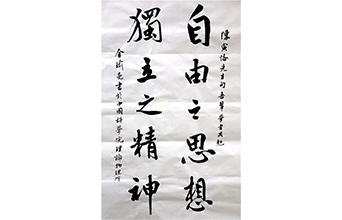 陳寅恪先生 吾輩學者
自由之思想
獨立之精神
書於中國科學院理論物理所